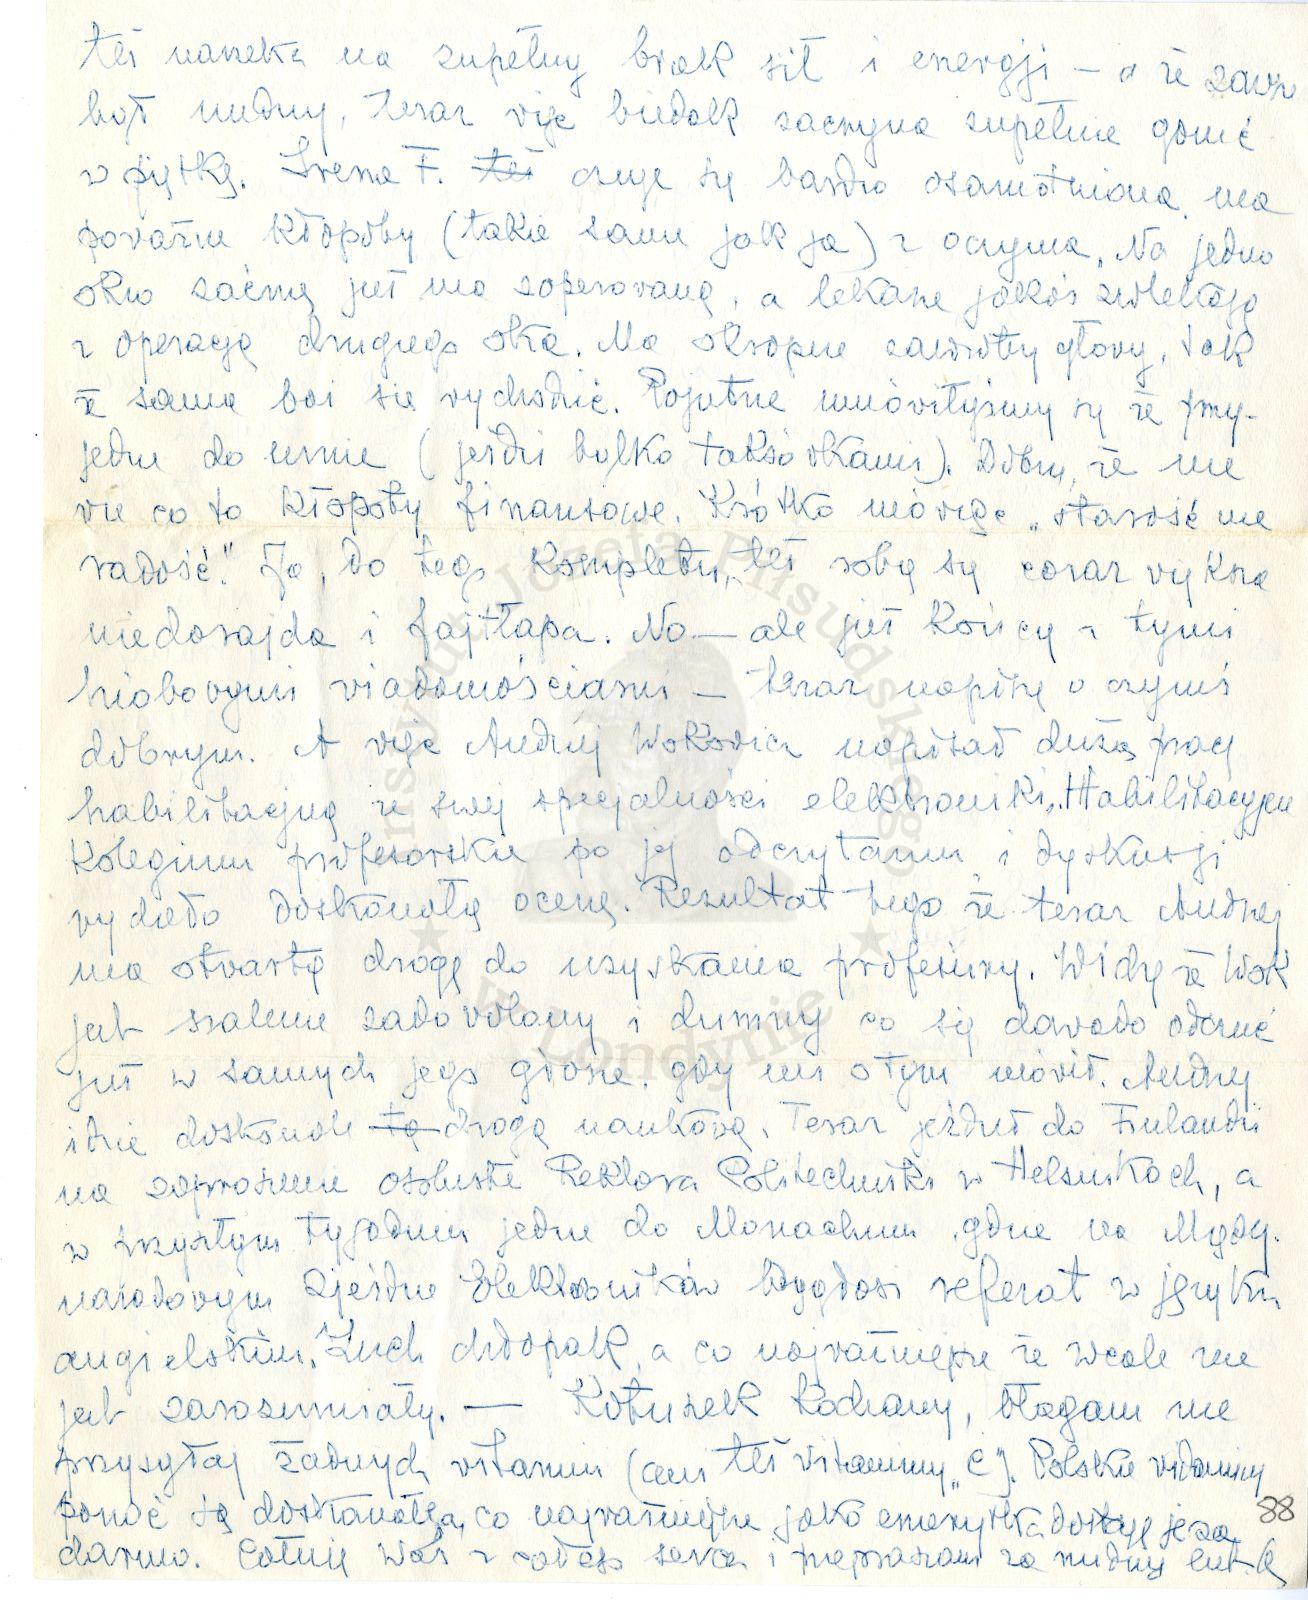 też narzeka na zupełny brak sił i energji – a że zawsze
był nudny, teraz więc biedak zaczyna zupełnie gonić
w piętkę. Irena F. też czuje się bardzo osamotniona, ma
poważne kłopoty (takie same jak ja) z oczyma. Na jedno
oko zaćmę już ma zoperowaną, a lekarze jakoś zwlekają
z operacją drugiego oka. Ma okropne zawroty głowy, tak
że sama boi się wychodzić. Pojutrze umówiłyśmy się że przy-
jedzie do mnie (jeździ tylko taksówkami). Dobrze, że nie
wie co to kłopoty finansowe. Krótko mówiąc „starość nie
radość". Ja, do tego kompletu, też robię się coraz większa
niedorajda i fajtłapa. No – ale już kończę z tymi
hiobowymi wiadomościami – teraz napiszę o czymś
dobrym. A więc Andrzej Wokowicz napisał dużą pracę
habilitacyjną ze swej specjalności elektroniki. Habilitacyjne
Kolegium profesorskie po jej odczytaniu i dyskusji
wydało doskonałą ocenę. Rezultat tego że teraz Andrzej
ma otwartą drogę do uzyskania profesury. Widzę że Wok
jest szalenie zadowolony i dumny co się dawało odczuć
już w samych jego głosie, gdy mi o tym mówił. Andrzej
idzie doskonale tą drogą naukową. Teraz jeździł do Finlandii
na zaproszenie osobiste Rektora Politechniki w Helsinkach, a
w przyszłym tygodniu jedzie do Monachium, gdzie na Między-
narodowym Zjeździe Elektroników wygłosi referat w języku
angielskim. Zuch chłopak, a co najważniejsze że wcale nie
jest zarozumiały. — Kotusek Kochany, błagam nie
przysyłaj żadnych witamin (ani też witaminy „C"). Polskie witaminy
ponoć są doskonałe, co najważniejsze jako emerytka dostaję je za
darmo. Całuję Was z całego serca i przepraszam za nudny list.
88
Instytut Józefa Piłsudskiego
w Londynie